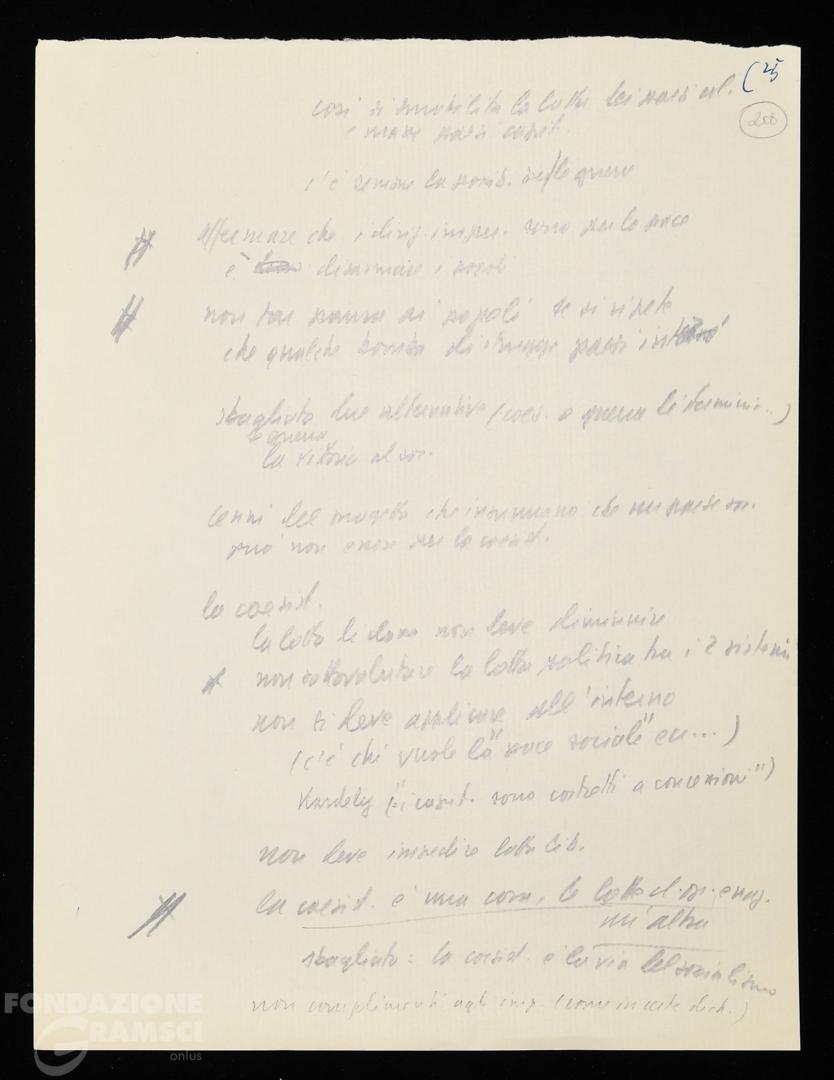 (25
208
così si smobilita la lotta dei paesi col.
e masse paesi capit.
c'è sempre la possib. di guerre
affermare che i dirig. imper. sono per la pace
è disarmare i popoli
non fare paura ai popoli se si ripete
che qualche bomba distrugge paesi interi
sbagliata due alternative (coes. o guerra di stermini..)
la guerra
la vittoria al soc.
cenni del progetto che insinuano che un paese soc.
può non essere per la coesist.
la coesist.
la lotta di classe non deve diminuire
non sottovalutare la lotta politica tra i 2 sistemi
non si deve applicare all'interno
(c'è chi vuole la "pace sociale" ecc...)
Kardelj ("i capit. sono costretti a concessioni")
non deve impedire lotta lib.
la coesist. è una cosa, la lotta d. op. e naz.
un'altra
sbagliato: la coesist. è la via del socialismo
non complimenti agli imp. (come in certe dich.)
FONDAZIONE
GRAMSCI
onlus